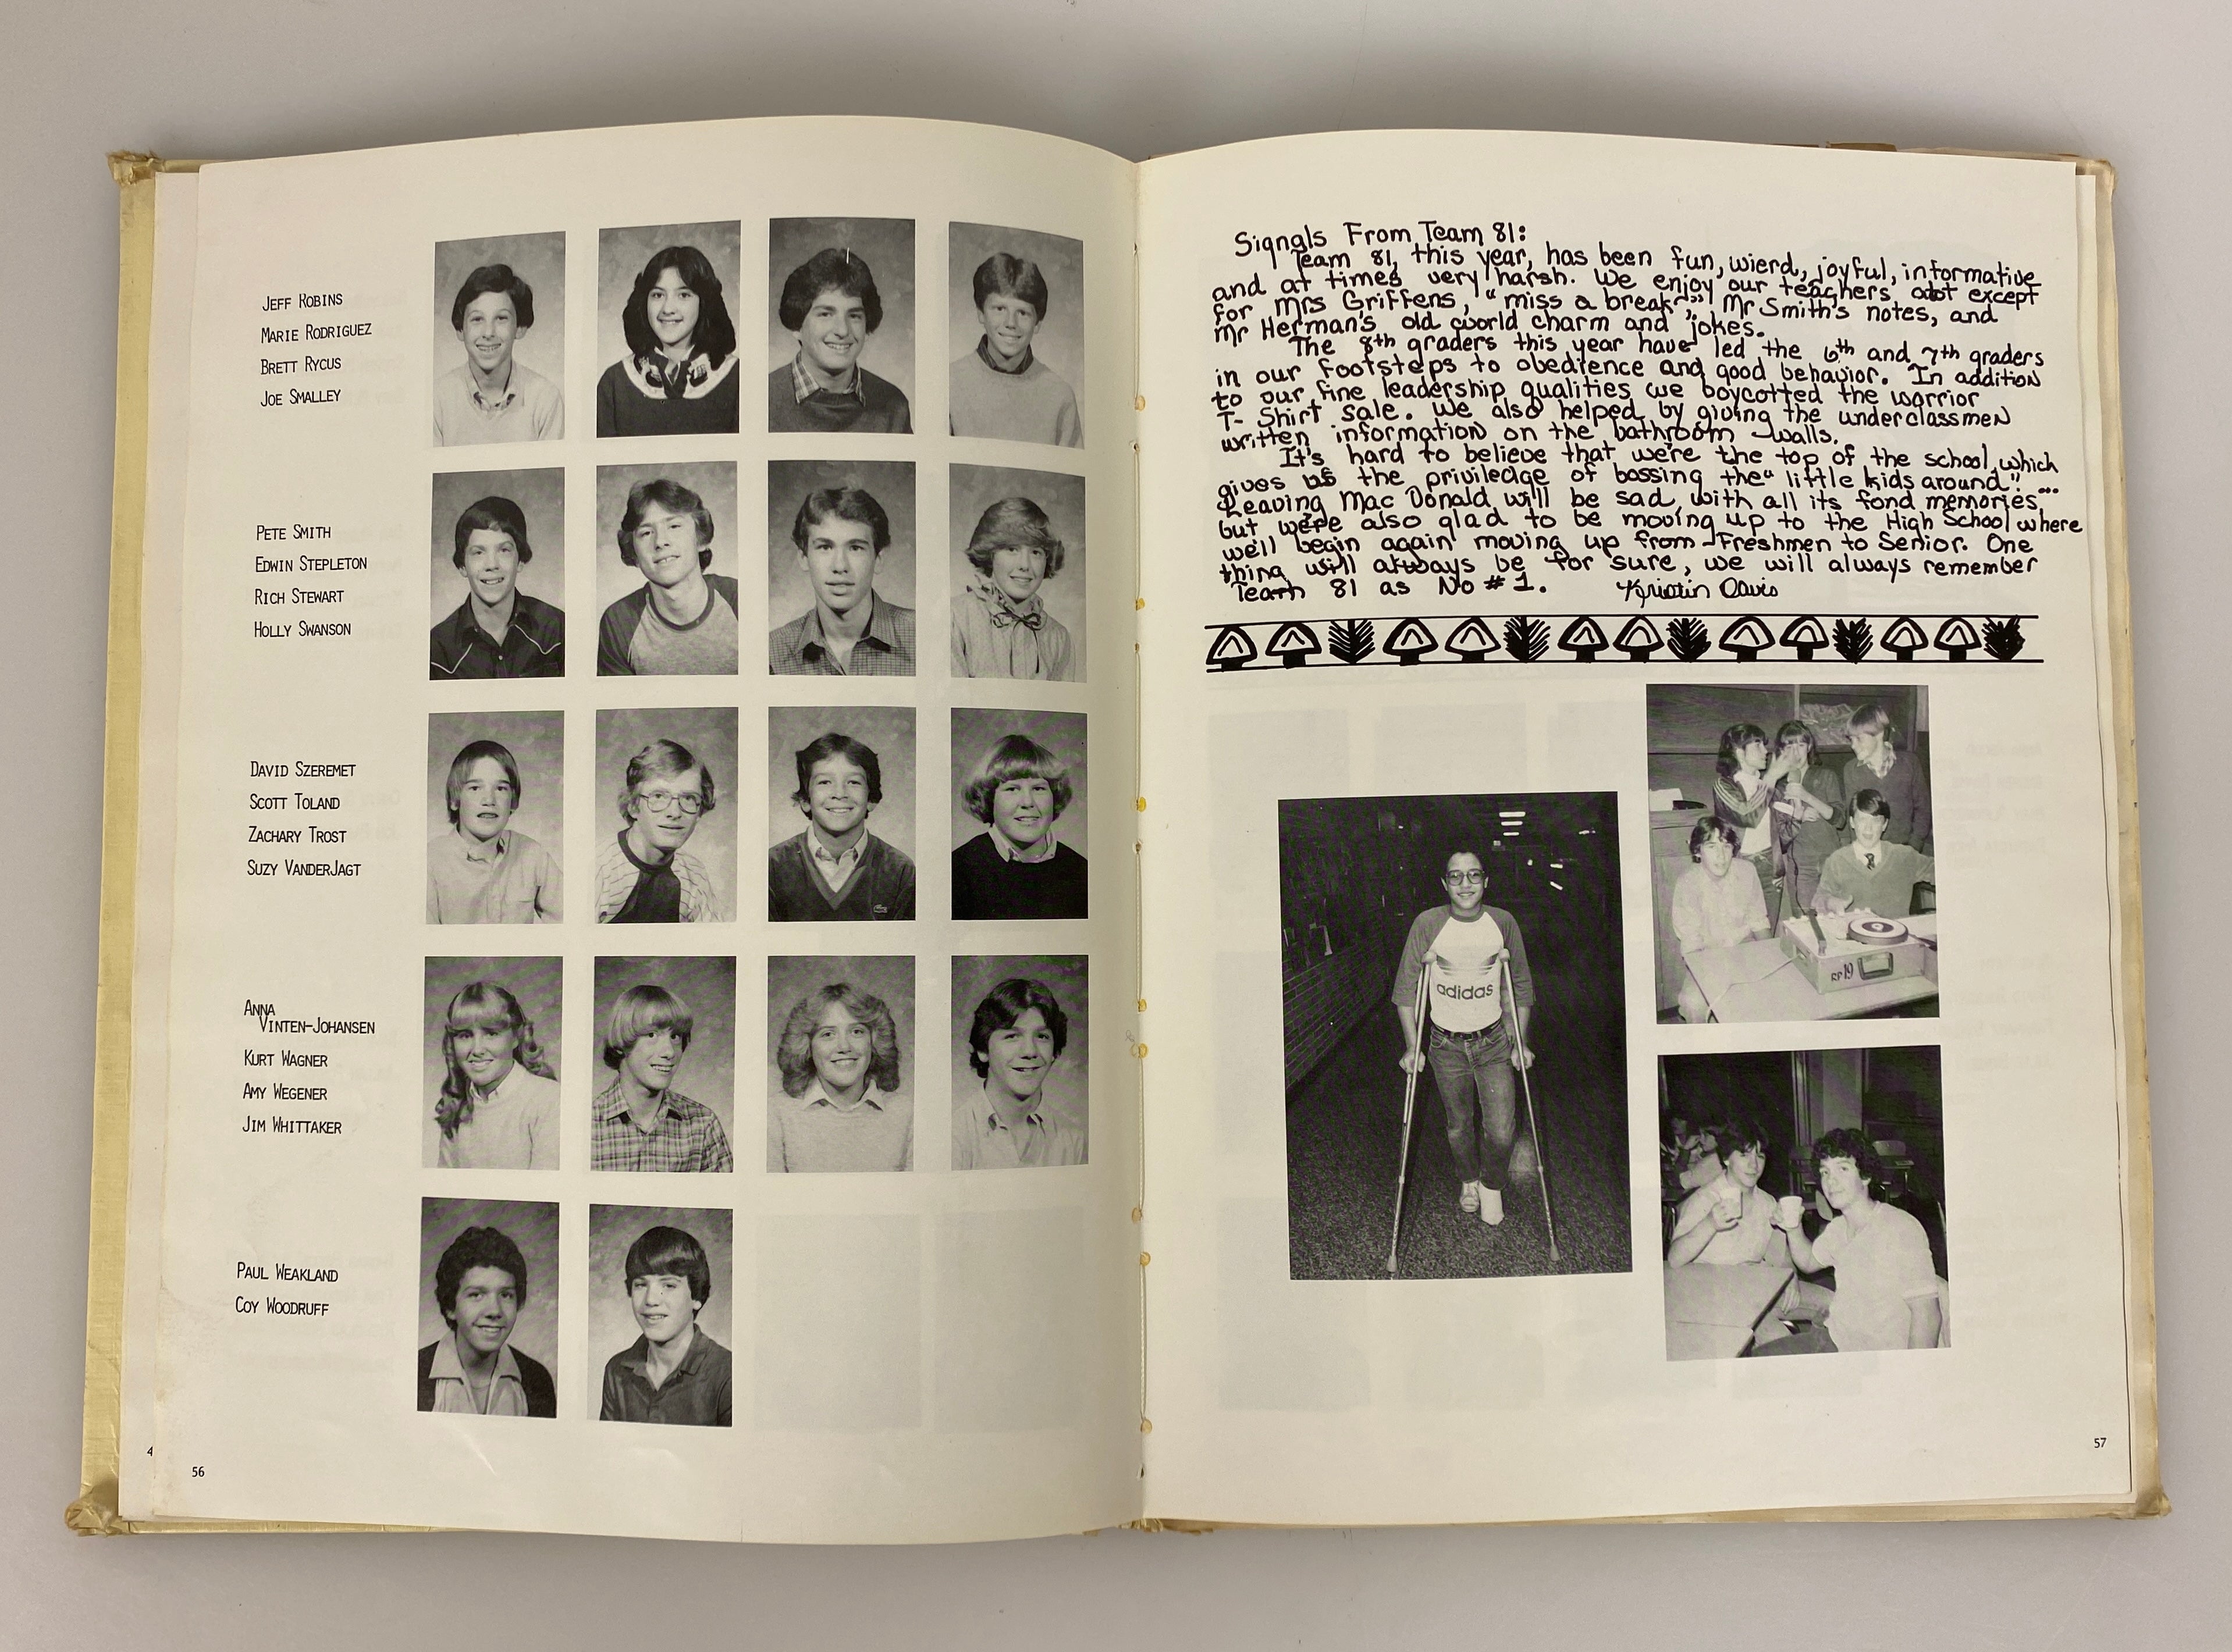 JEFF ROBINS
MARIE RODRIGUEZ
BRETT RYCUS
JOE SMALLEY
PETE SMITH
EDWIN STEPLETON
RICH STEWART
HOLLY SWANSON
DAVID SZEREMET
SCOTT TOLAND
ZACHARY TROST
SUZY VANDERJAGT
ANNA
VINTEN-JOHANSEN
KURT WAGNER
AMY WEGENER
JIM WHITTAKER
PAUL WEAKLAND
COY WOODRUFF
4
56
Signals From Team 81:
Team 81, this year, has been fun, wierd, joyful, informative
and at times very harsh. We enjoy our teachers alot except
for Mrs Griffens, "miss a break", Mr Smith's notes, and
Mr Herman's old world charm and jokes.
The 8th graders this year have led the 6th and 7th graders
in our footsteps to obedience and good behavior. In addition
to our fine leadership qualities we boycotted the warrior
T-Shirt sale. We also helped by giving the underclassmen
written information on the bathroom walls.
It's hard to believe that we're the top of the school, which
gives us the priviledge of bossing the "little kids around".
Leaving Mac Donald will be sad with all its fond memories...
but we're also glad to be moving up to the High School where
we'll begin again moving up from Freshmen to Senior. One
thing will always be for sure, we will always remember
Team 81 as No #1. Kristin Davis
adidas
RP19
57